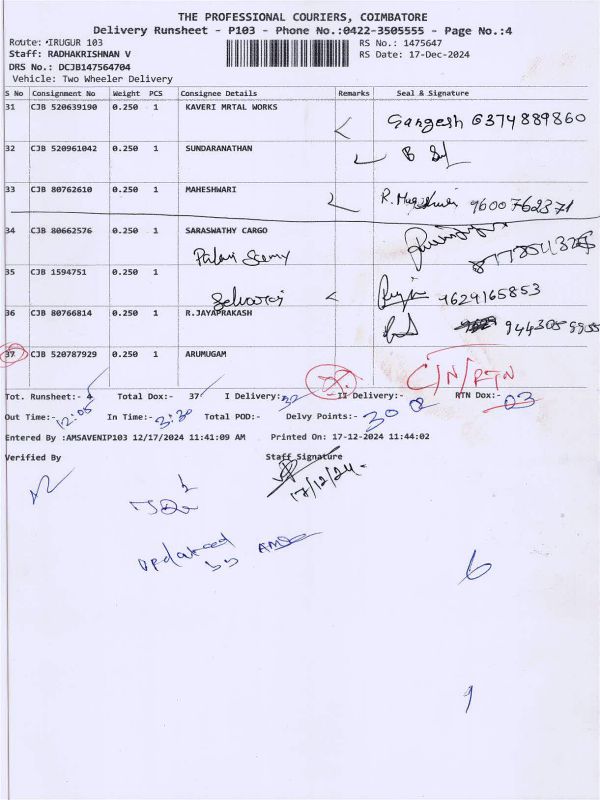 THE PROFESSIONAL COURIERS, COIMBATORE
Delivery Runsheet - P103 - Phone No.:0422-3505555 - Page No.:4
Route: IRUGUR 103 RS No.: 1475647
Staff: RADHAKRISHNAN V RS Date: 17-Dec-2024
DRS No.: DCJB147564704
Vehicle: Two Wheeler Delivery
S No Consignment No Weight PCS Consignee Details Remarks Seal & Signature
31 CJB 520639190 0.250 1 KAVERI MRTAL WORKS Gangesh 6374889860
32 CJB 520961042 0.250 1 SUNDARANATHAN
33 CJB 80762610 0.250 1 MAHESHWARI 9600762371
34 CJB 80662576 0.250 1 SARASWATHY CARGO
Palani Samy
35 CJB 1594751 0.250 1 9629165853
Selvaraj
36 CJB 80766814 0.250 1 R.JAYAPRAKASH
37 CJB 520787929 0.250 1 ARUMUGAM C/N/RTN
Tot. Runsheet:- Total Dox:- 37 I Delivery:- II Delivery:- RTN Dox:- 03
Out Time:- 12:05 In Time:- 3:30 Total POD:- Delvy Points:- 30
Entered By :AMSAVENIP103 12/17/2024 11:41:09 AM Printed On: 17-12-2024 11:44:02
Verified By Staff Signature
17/12/24
updated
by AMS
6